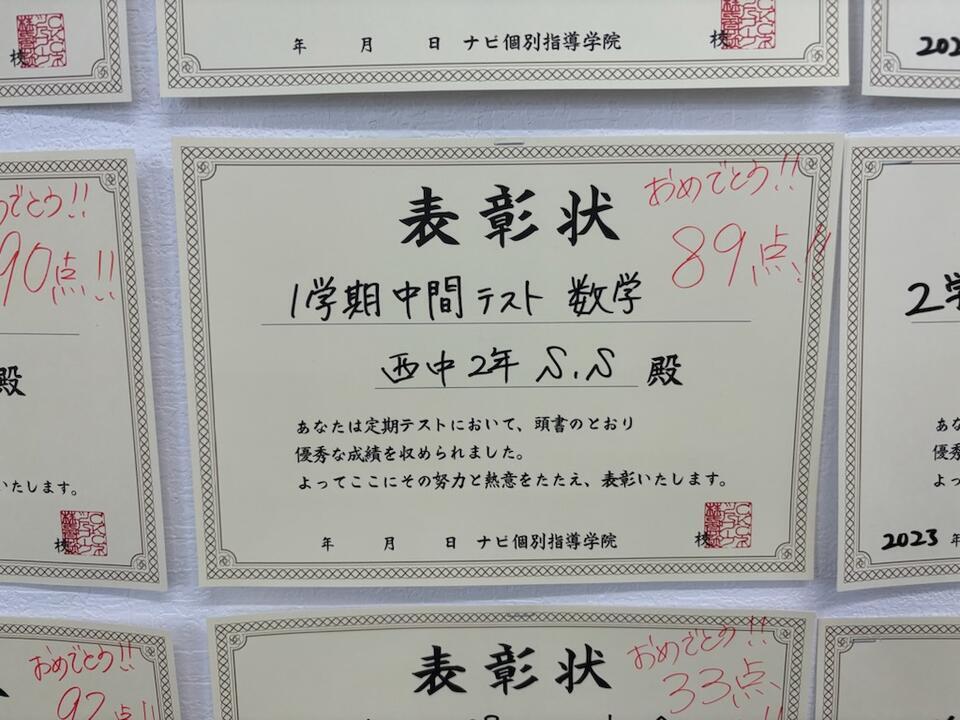 年 月 日 ナビ個別指導学院 校
校
202
表彰状
おめでとう!!
89点!!
1学期中間テスト 数学
西中2年 S.S 殿
あなたは定期テストにおいて、頭書のとおり
優秀な成績を収められました。
よってここにその努力と熱意をたたえ、表彰いたします。
年 月 日 ナビ個別指導学院 校
めでとう!!
90点!!
殿
いたします。
校
2学
あな
優秀
よ
2023 年
おめでとう!!
92点!!
表彰状
おめでとう!!
33点